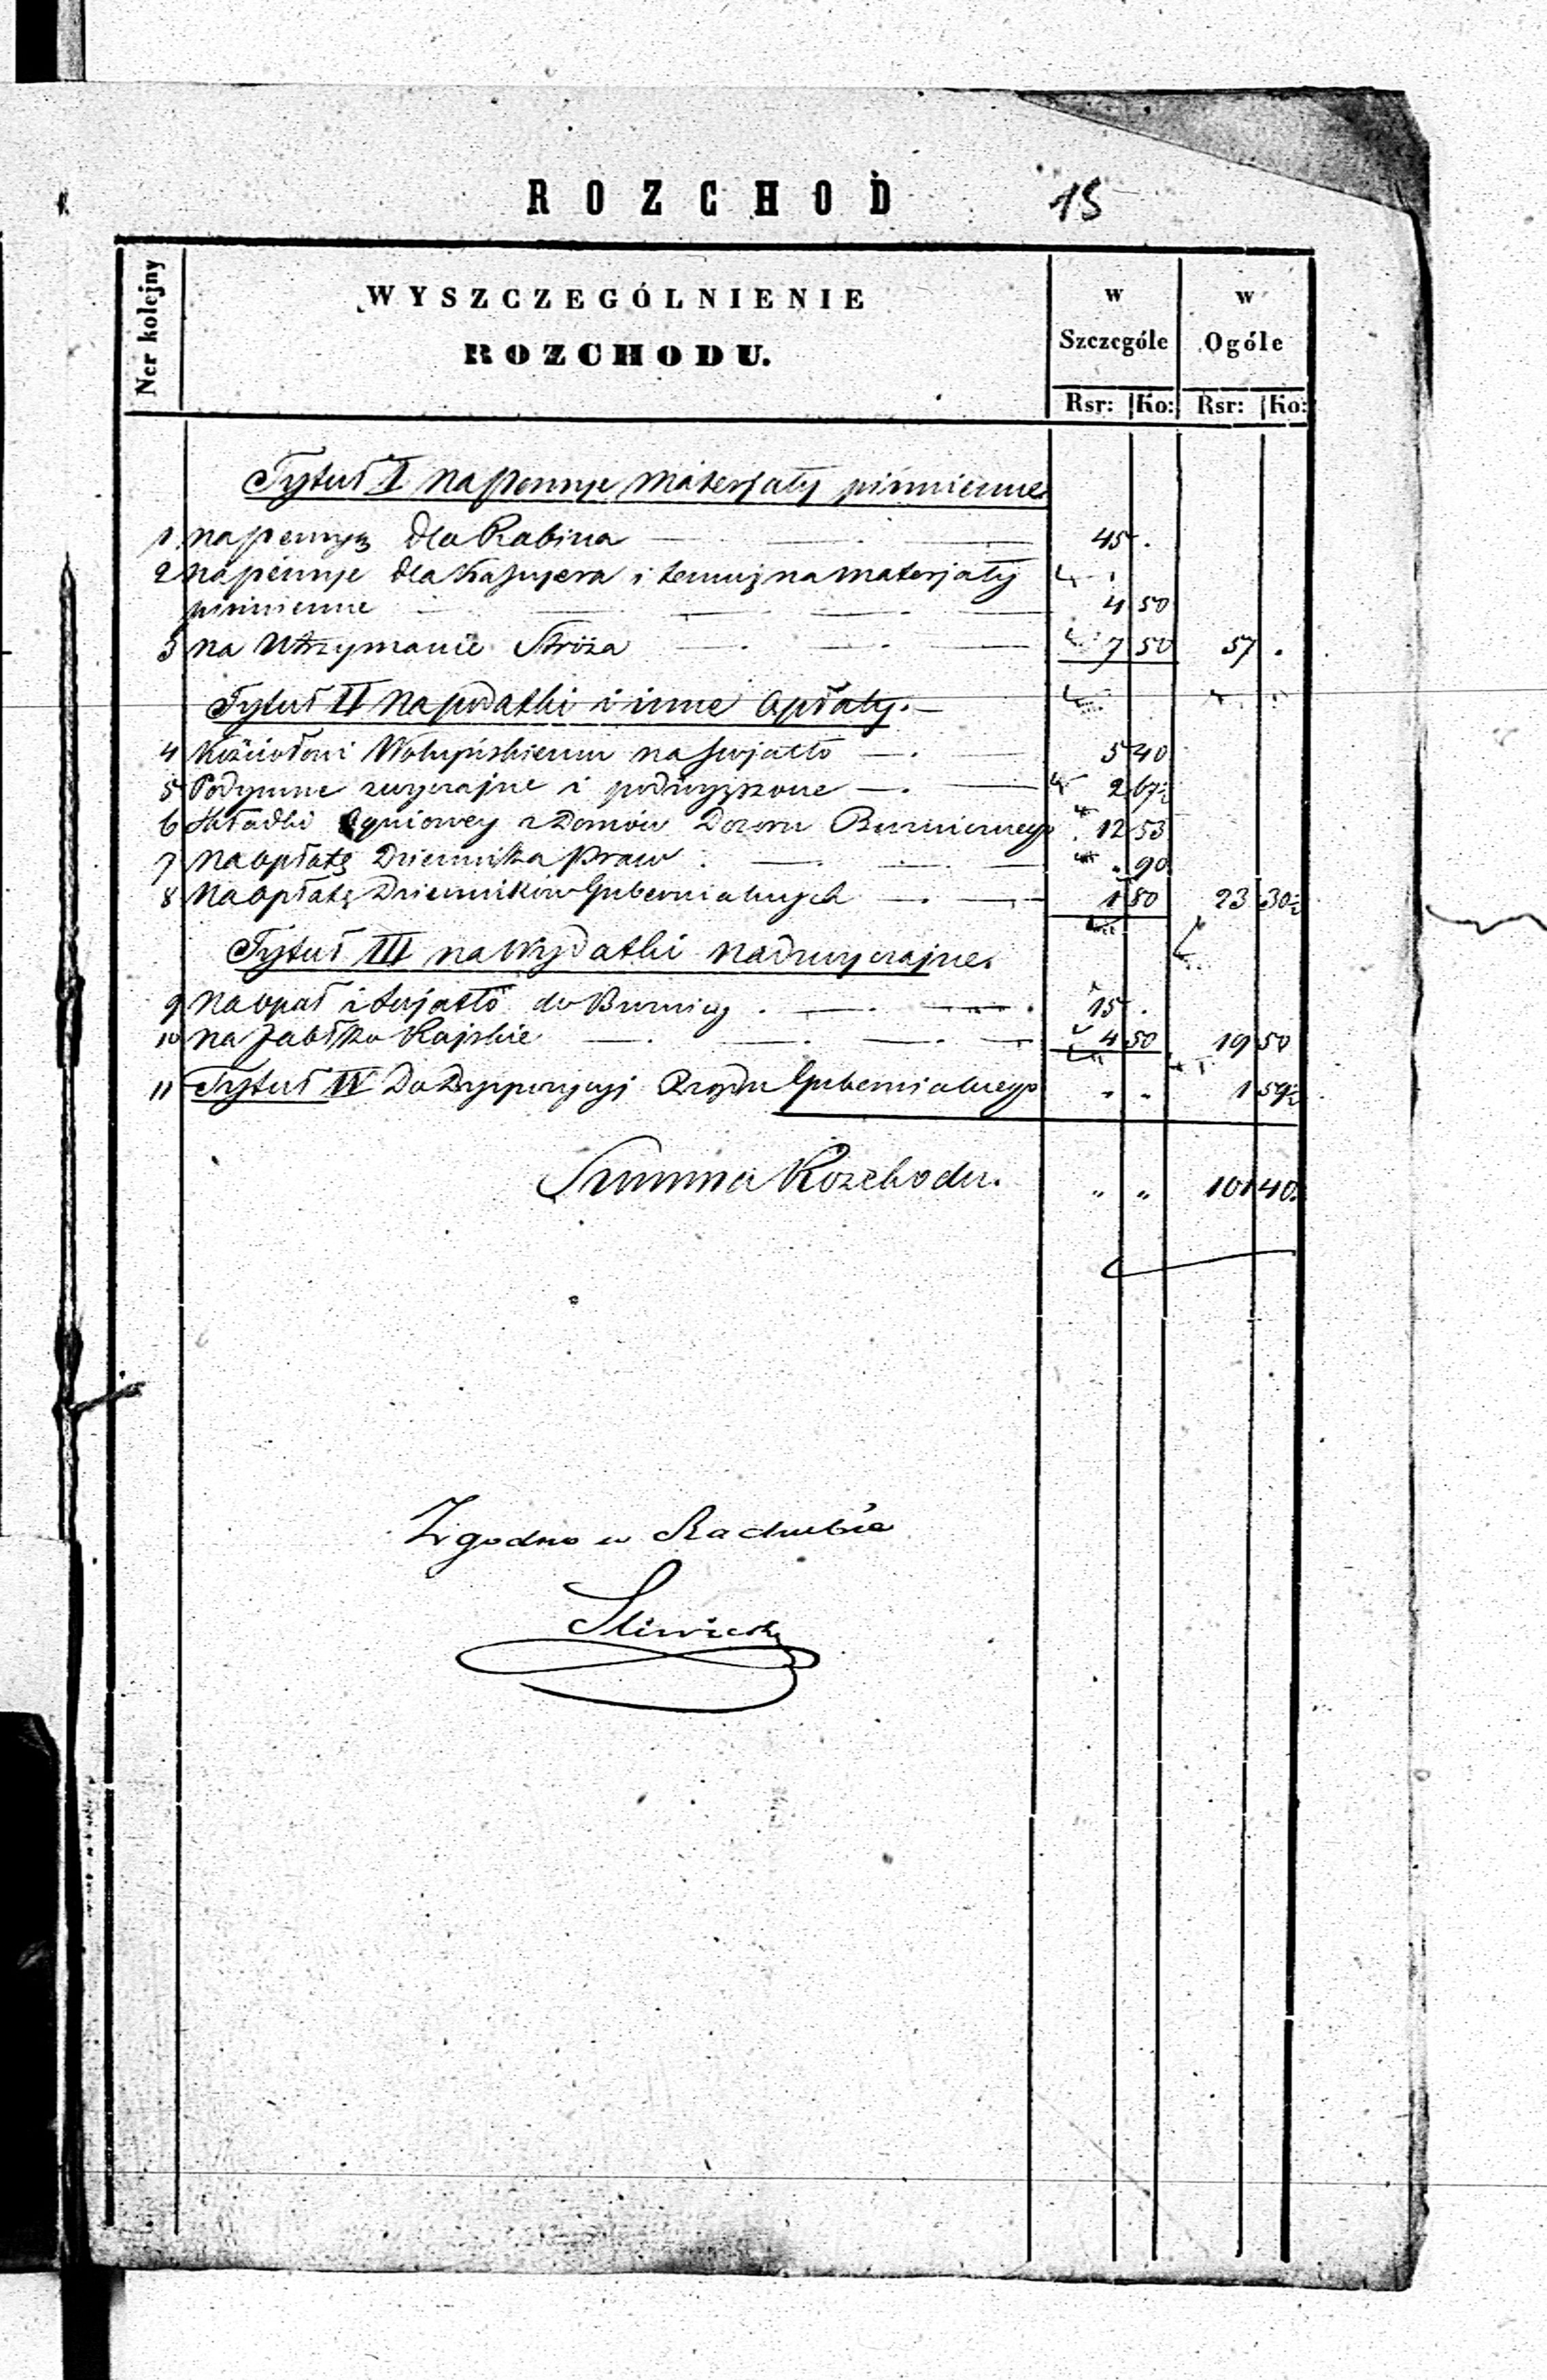 ROZCHOD 15
Ner kolejny
WYSZCZEGÓLNIENIE
ROZCHODU.
w Szczególe
w Ogóle
Rsr: Ko: Rsr: Ko:
Tytuł I na pensye materjały piśmienne
1. na pensyą dla Rabina 45 .
2 na pensyje dla Kassyera i temuż na materjały
piśmienne 4 50
3 na Utrzymanie Stróża 7 50 57 .
Tytuł II na podatki i inne Opłaty.
4 Kościołowi Wolupińskiemu na swjatło 5 40
5 Podymne zwyczajne i podwyższone 2 67½
6 Składki Ogniowey z Domów Dozoru Bużnicznego 12 53
7 na opłatę Dziennika praw „ 90
8 Na opłatę Dzienników Gubernialnych 1 80 23 30½
Tytuł III na Wydatki nadzwyczajne.
9 Na opał i swjatło do Bużnicy 15 .
10 na Jabłko Rajskie 4 50 19 50
11 Tytuł IV Do Dyspozycyi Rządu Gubernialnego „ „ 1 59½
Summa Rozchodu. „ „ 101 40.
Zgodno w Rachubie